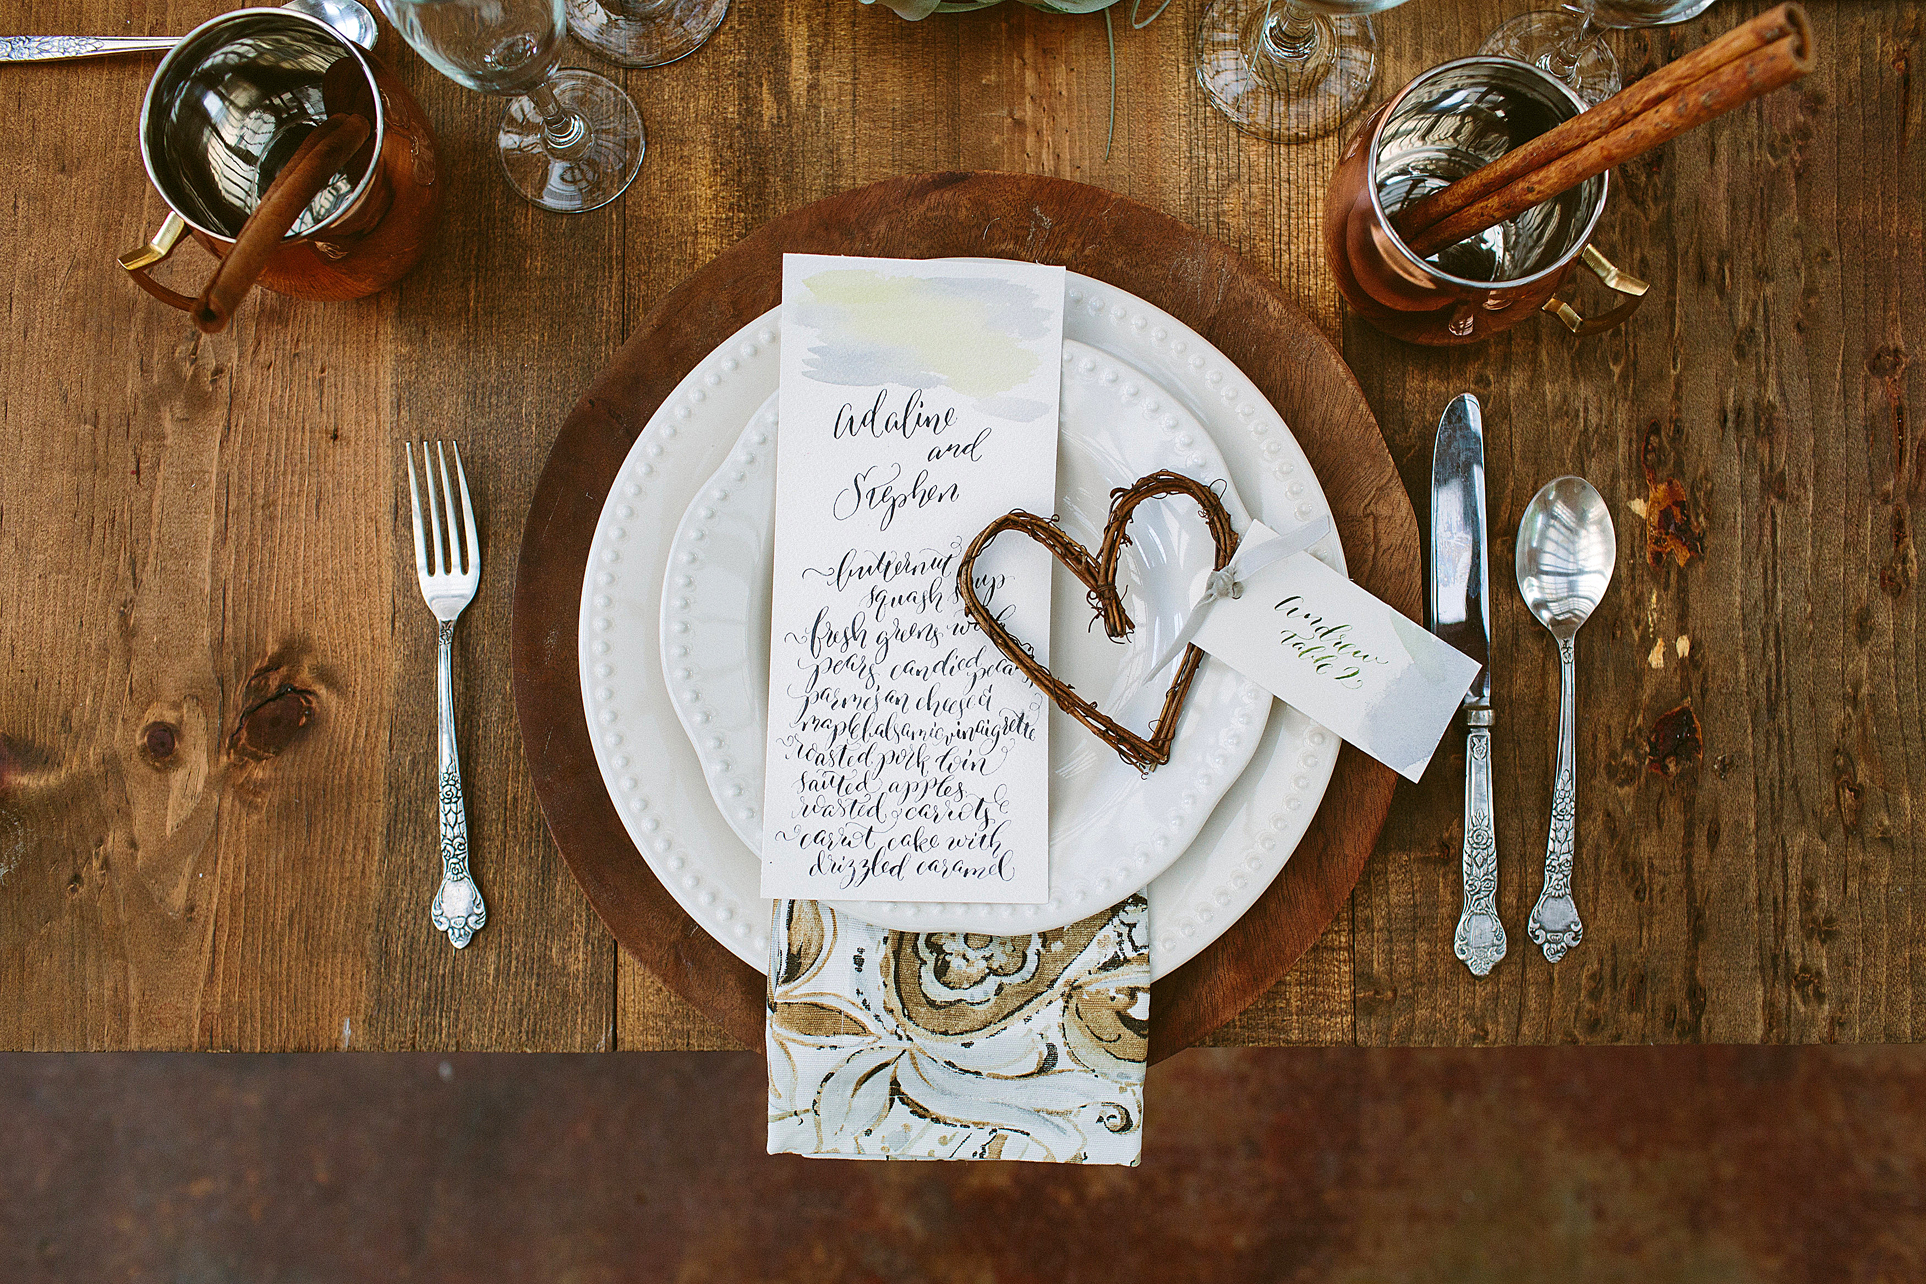 Adaline
and
Stephen
butternut
squash soup
fresh greens with
pears, candied pecans,
parmesan cheese &
maple balsamic vinaigrette
roasted pork loin
sautéed apples &
roasted carrots
carrot cake with
drizzled caramel
Andrew
Table 2